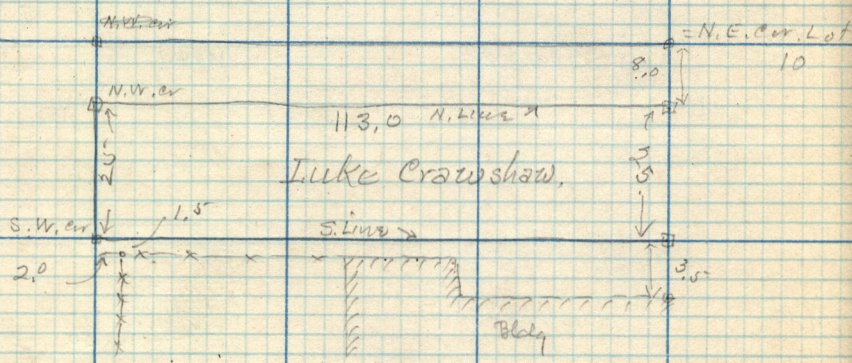 N.W.cr
= N.E. Cor. Lot
10
8.0
N.W.cr
113.0 N. Line
25
25
Luke Crawshaw.
S.W.cr
1.5
S. Line
2.0
3.5
Bldg